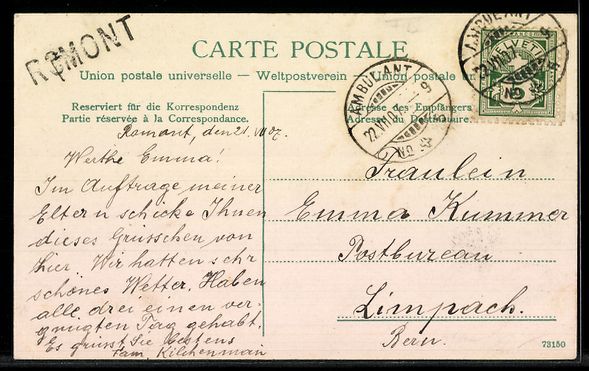 ROMONT
CARTE POSTALE
Union postale universelle — Weltpostverein — Union postale un
Reserviert für die Korrespondenz
Partie réservée à la Correspondance.
Adresse des Empfängers
Adresse du Destinataire.
AMBULANT
22.VII.07
No
AMBULANT
22.VII.07
No
HELVETIA
Romont, den 21. VII 07.
Werthe Emma!
Im Auftrage meiner
Eltern schicke Ihnen
dieses Grüsschen von
hier. Wir hatten sehr
schönes Wetter. Haben
alle drei einen ver-
gnügten Tag gehabt.
Es grüsst Sie bestens
Fam. Kilchenmann
Fräulein
Emma Kummer
Postbureau
Limpach.
Bern.
73150